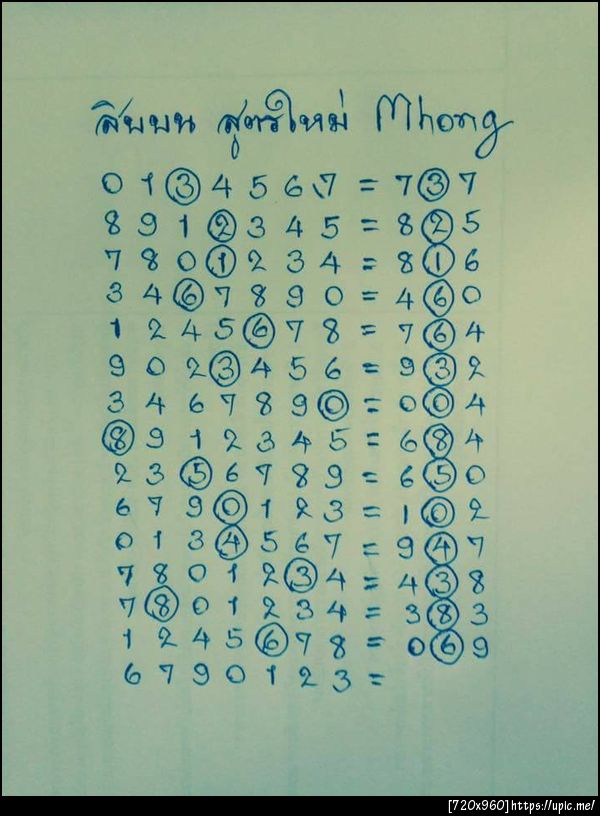 สิบบน สูตรใหม่ Mhong
0 1 3 4 5 6 7 = 7 3 7
8 9 1 2 3 4 5 = 8 2 5
7 8 0 1 2 3 4 = 8 1 6
3 4 6 7 8 9 0 = 4 6 0
1 2 4 5 6 7 8 = 7 6 4
9 0 2 3 4 5 6 = 9 3 2
3 4 6 7 8 9 0 = 0 0 4
8 9 1 2 3 4 5 = 6 8 4
2 3 5 6 7 8 9 = 6 5 0
6 7 9 0 1 2 3 = 1 0 2
0 1 3 4 5 6 7 = 9 4 7
7 8 0 1 2 3 4 = 4 3 8
7 8 0 1 2 3 4 = 3 8 3
1 2 4 5 6 7 8 = 0 6 9
6 7 9 0 1 2 3 =
[720x960]https://upic.me/